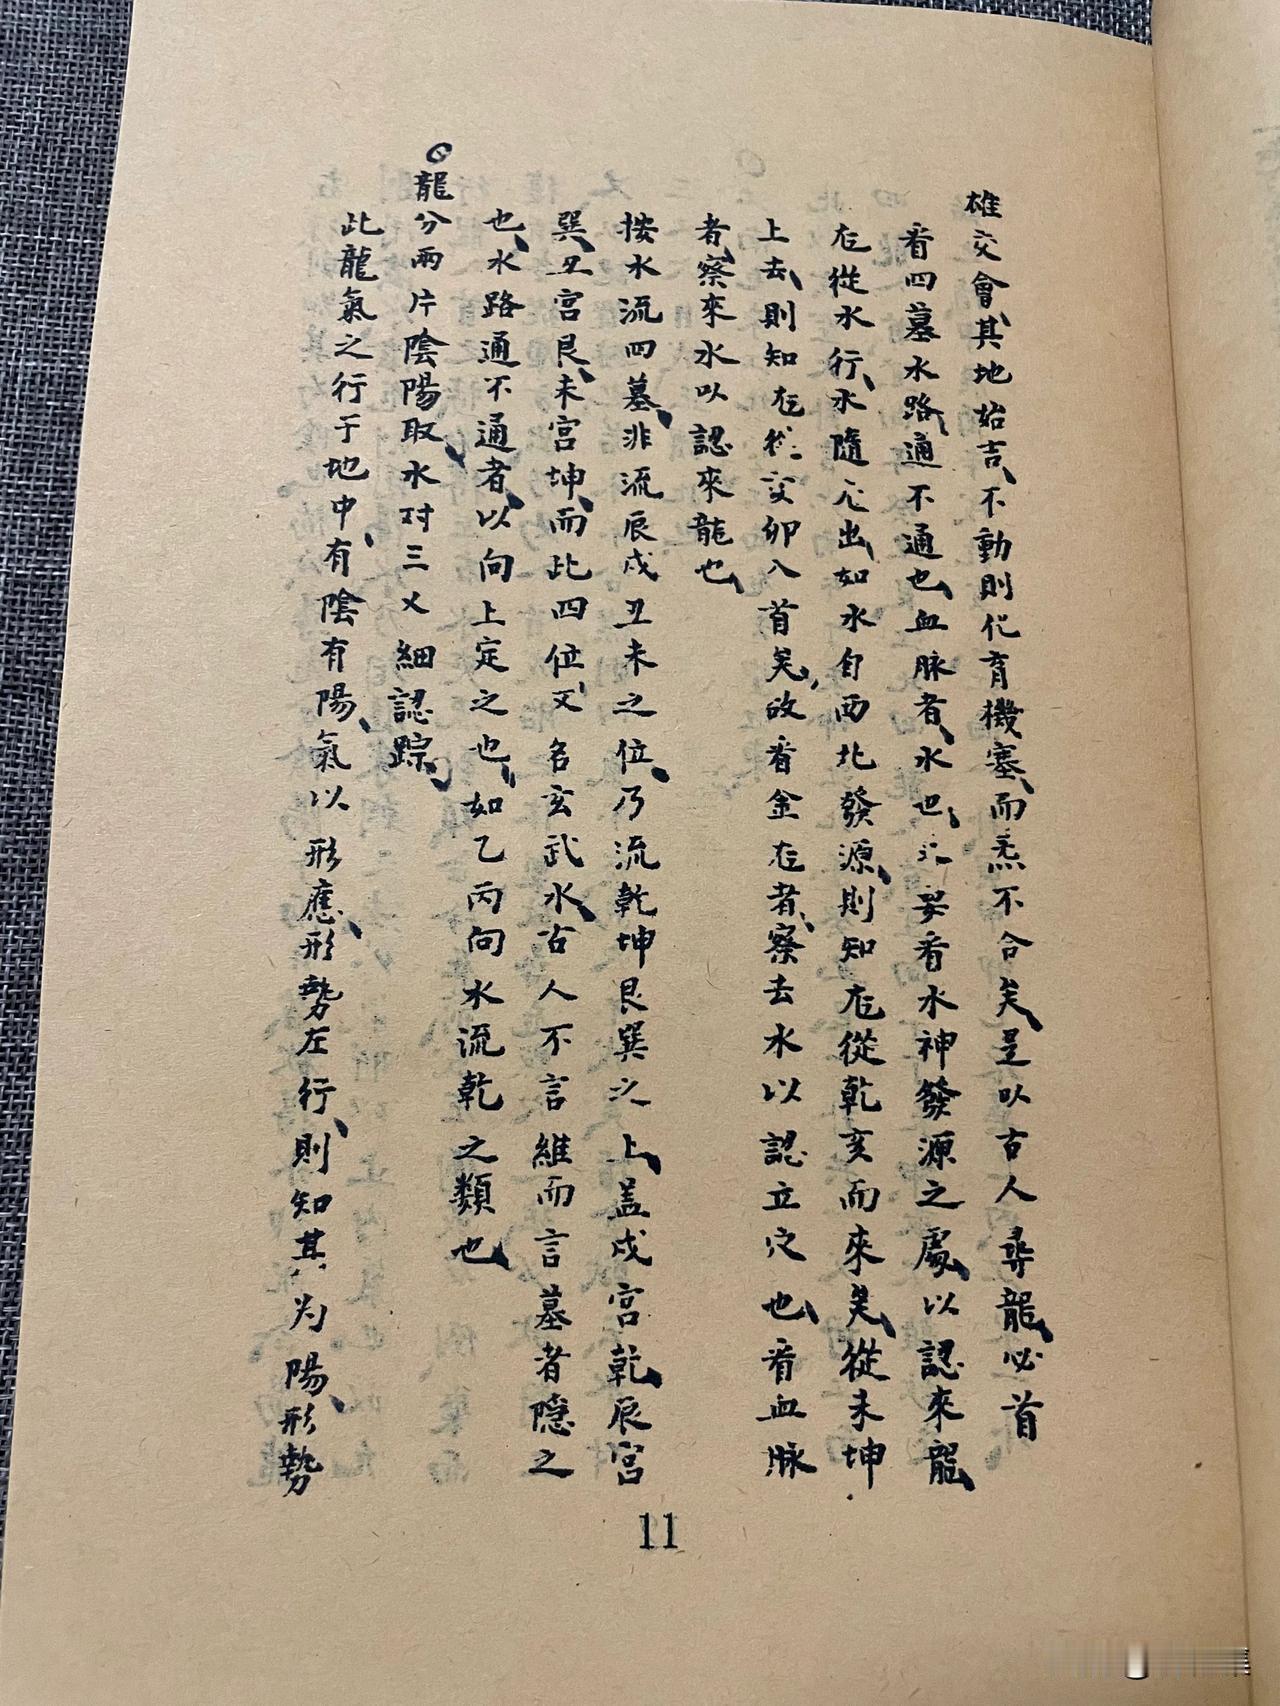 雄交會其地始吉不動則化育機塞而炁不合矣是以古人尋龍必首
看四墓水路通不通也血脉者水也必要看水神發源之處以認來龍
左從水行水隨左出如水自西北發源則知左從乾亥而來矣從未坤
上去則知左從艾卯入首矣故看金左者察去水以認立穴也看血脉
者察來水以認來龍也
按水流四墓非流辰戌丑未之位乃流乾坤艮巽之上盖戌宮乾辰宮
巽丑宮艮未宮坤而此四位又名玄武水古人不言維而言墓者隱之
也水路通不通者以向上定之也如乙丙向水流乾之類也
龍分兩片陰陽取水对三义細認踪
此龍氣之行于地中有陰有陽氣以形應形勢左行則知其为陽形勢
11